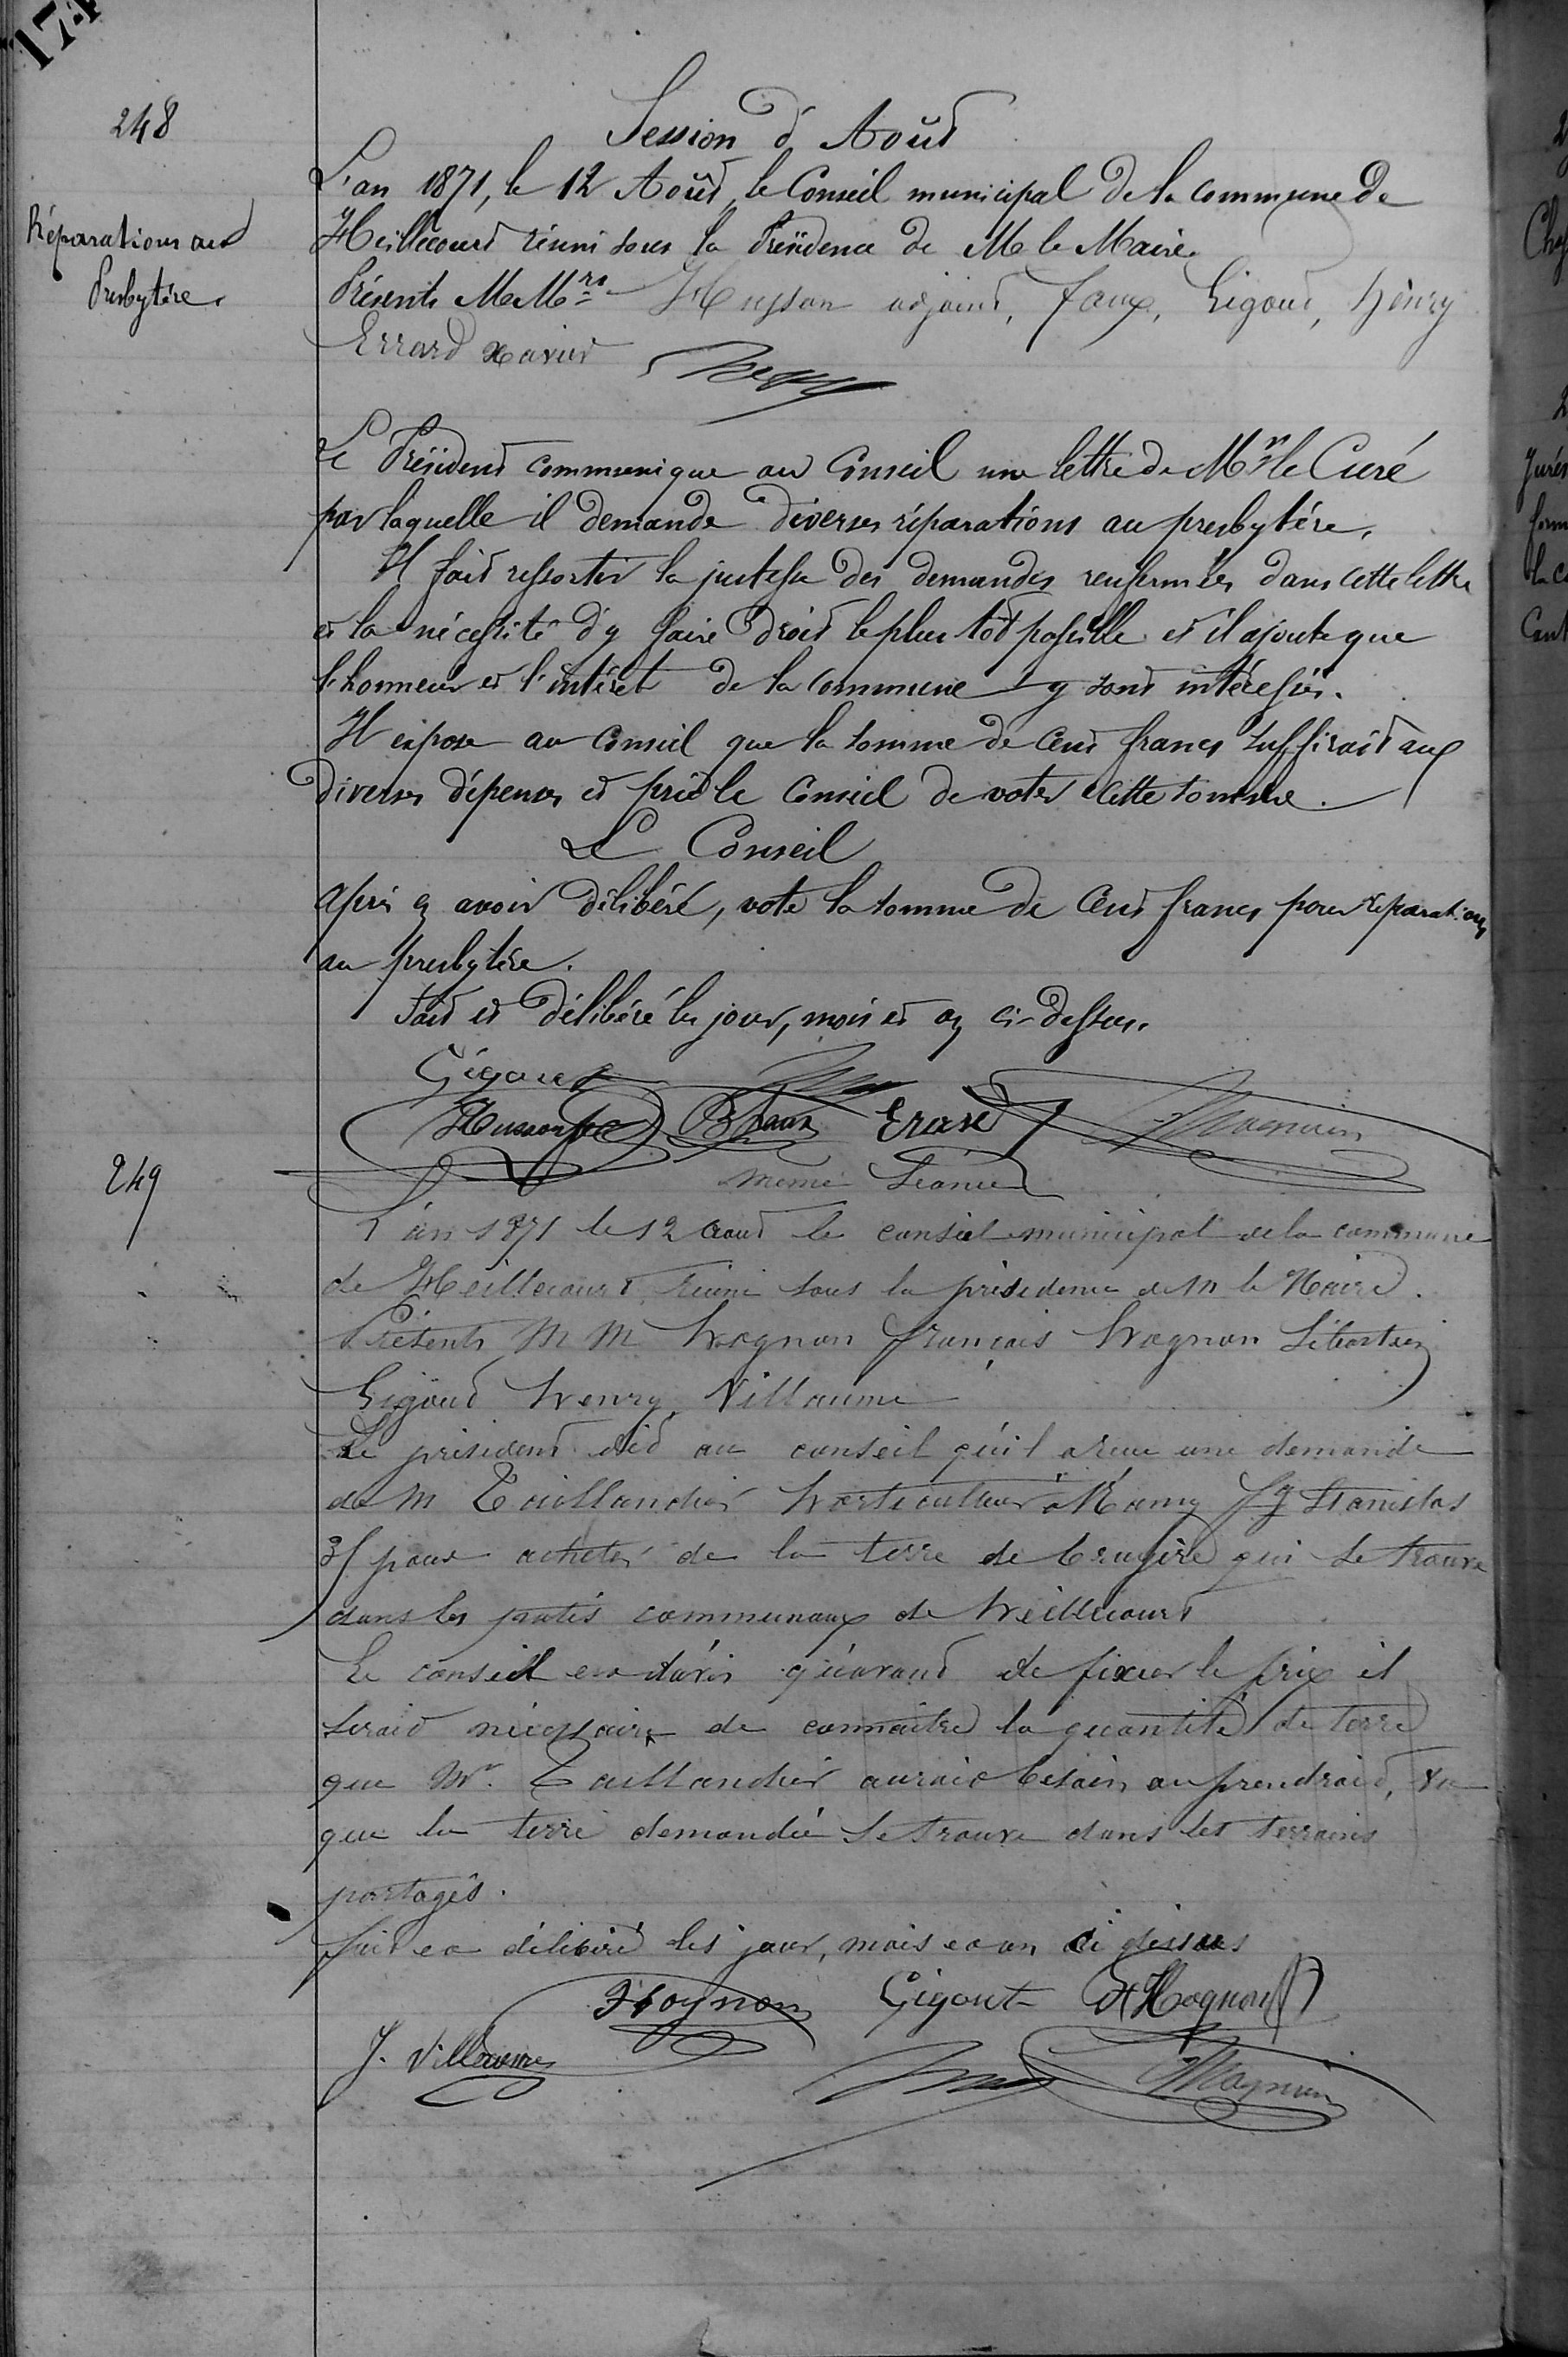 174
248
Session d'Août
L'an 1871, le 12 Août, le Conseil municipal de la commune de
Réparations au
Heillecourt réuni sous la Présidence de M le Maire.
Presbytère.
Présents MM.rs Husson adjoint, faux, Gigout, henry
Errard xavier
Le Président communique au Conseil une lettre de Mr le Curé
par laquelle il demande diverses réparations au presbytère.
Il fait ressortir la justesse des demandes renfermées dans cette lettre
et la nécessité d'y faire droit le plus tôt possible et il ajoute que
l'honneur et l'intéret de la commune y sont intéressés.
Il expose au Conseil que la somme de Cent francs suffirait aux
diverses dépenses et prie le Conseil de voter cette somme.
Le Conseil
après en avoir délibéré, vote la somme de Cent francs pour réparations
au presbytère.
Fait et délibéré les jour, mois et an ci-dessus.
Gigout
Husson faux Erard
249
même Séance
L'an 1871 le 12 aout le conseil municipal de la commune
de Heillecourt réuni sous la présidence de M le Maire.
Présents M M hognon françois hognon Sébastien
Gigout henry Villaume
Le président dit au conseil qu'il a reçu une demande
de M Taillandier horticulteur à Nancy fg Stanislas
31 pour acheter de la terre de bruyère qui se trouve
dans les patis communaux de heillecourt
Le conseil est d'avis qu'avant de fixer le prix il
serait nécessaire de connaitre la quantité de terre
que Mr. Taillandier aurait besoin ou prendrait, vu
que la terre demandée se trouve dans les terrains
partagés.
fait et délibéré les jour, mois et an ci dessus
Hognon Gigout Hognon
J. Villaume